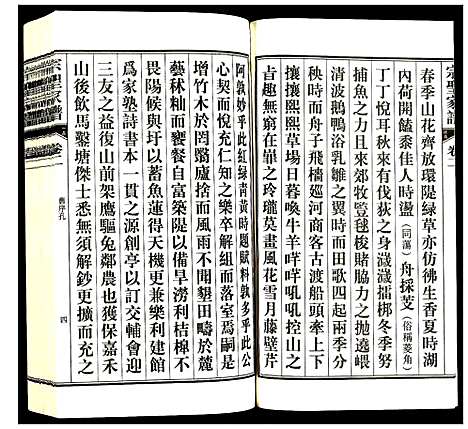 宗聖家譜 卷一
春季山花齊放環隄綠草亦仿彿生香夏時湖
內荷開饁黍佳人時盪（同蕩）舟採芰（俗稱菱角）
丁丁悅耳秋來有伐荻之身濊濊揩梆冬季努
捕魚之力且也來郊牧豎毬梭賭脇力之拋遶畷
清波鵝鴨浴乳雛之翼時而田歌四起聲聞插
秧時而舟子飛檣巡河商客古渡船多牽上下
攘攘熙熙草場日暮喚牛羊哶哶吼吼控山之
卣趣無窮在巢之玲瓏莫畫風花雪月藤壁芹
阿敦妙乎此紅綠靑黃時題賦料敦多乎此公
心契而悅充仁知之樂卒解組而落窩焉嗣是
增竹木於罔鷖廬捨而風雨不聞墾田疇於麓
藝秫秈而饔餐自富築隄以備旱澇利桔橰不
畏陽侯與圩以蓄魚蓮得天機更兼樂利建館
爲家塾詩書本一貫之源創亭以訂交輔會迎
三友之益復於山前架鷹驅兔鄰農也獲保嘉禾
山後飲馬鑿塘傑士悉無須解鈔更擴而充之
舊序孔
四